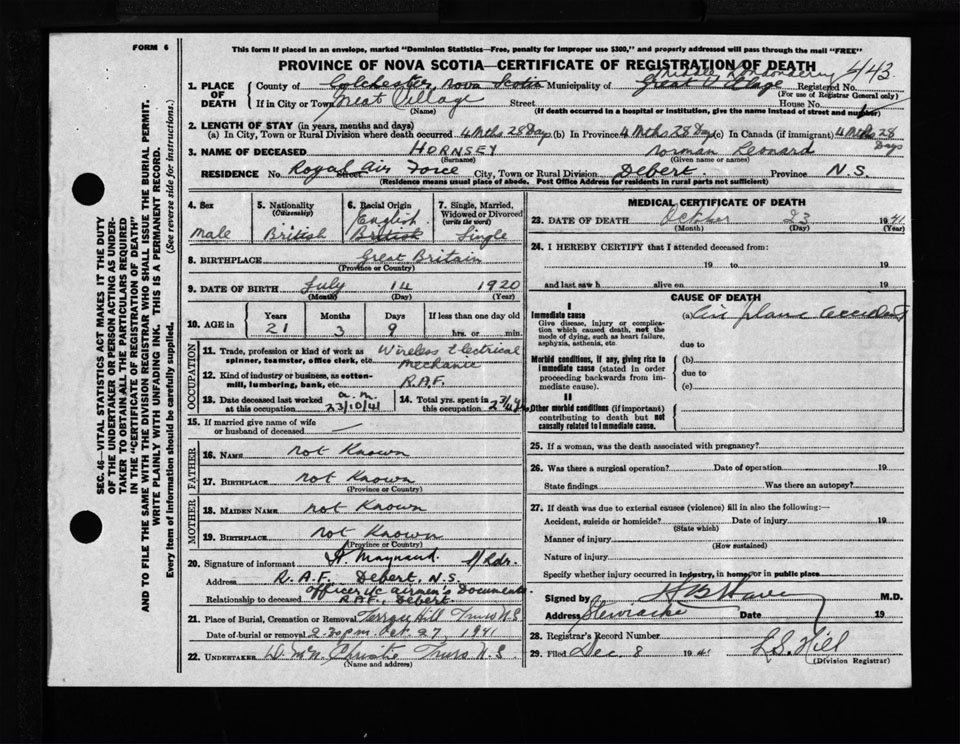 FORM 6
This form if placed in an envelope, marked "Dominion Statistics—Free, penalty for improper use $300," and properly addressed will pass through the mail "FREE"
PROVINCE OF NOVA SCOTIA—CERTIFICATE OF REGISTRATION OF DEATH
Middle Londonderry 443
1. PLACE OF DEATH
County of Colchester, Nova Scotia Municipality of Great Village Registered No.
(For use of Registrar General only)
If in City or Town Great Village Street House No.
(Name) (If death occurred in a hospital or institution, give the name instead of street and number)
2. LENGTH OF STAY (in years, months and days)
(a) In City, Town or Rural Division where death occurred 4 Mths 28 Days (b) In Province 4 Mths 28 Days (c) In Canada (if immigrant) 4 Mths 28 Days
3. NAME OF DECEASED HORNSEY Norman Leonard
(Surname) (Given name or names)
RESIDENCE No. Royal Air Force Street City, Town or Rural Division Debert. Province N.S.
(Residence means usual place of abode. Post Office Address for residents in rural parts not sufficient)
4. Sex
male
5. Nationality
(Citizenship)
British
6. Racial Origin
English
British
7. Single, Married, Widowed or Divorced
(write the word)
Single
8. BIRTHPLACE Great Britain
(Province or Country)
9. DATE OF BIRTH July 14 1920
(Month) (Day) (Year)
10. AGE in
Years Months Days If less than one day old
21 3 9 hrs. or min.
OCCUPATION
11. Trade, profession or kind of work as spinner, teamster, office clerk, etc. Wireless Electrical Mechanic
12. Kind of industry or business, as cotton-mill, lumbering, bank, etc. R.A.F.
13. Date deceased last worked at this occupation a.m. 23/10/41
14. Total yrs. spent in this occupation 2 3/4 yrs
15. If married give name of wife or husband of deceased —
FATHER
16. NAME not Known
17. BIRTHPLACE not Known
(Province or Country)
MOTHER
18. MAIDEN NAME not Known
19. BIRTHPLACE not Known
(Province or Country)
20. Signature of informant H Maynard. S/Ldr.
Address R.A.F. Debert, N.S.
Relationship to deceased Officer i/c airmen's Documents R.A.F., Debert.
21. Place of Burial, Cremation or Removal Terrace Hill Truro N.S
Date of burial or removal 2.30 p.m. Oct. 27 1941
22. UNDERTAKER Christie Truro N.S.
(Name and address)
MEDICAL CERTIFICATE OF DEATH
23. DATE OF DEATH October 23 1941
(Month) (Day) (Year)
24. I HEREBY CERTIFY that I attended deceased from:
19 to 19
and last saw h alive on 19
CAUSE OF DEATH
I
Immediate cause
Give disease, injury or complication which caused death, not the mode of dying, such as heart failure, asphyxia, asthenia, etc.
(a) Air plane accident
due to
Morbid conditions, if any, giving rise to immediate cause (stated in order proceeding backwards from immediate cause).
(b)
due to
(c)
II
Other morbid conditions (if important) contributing to death but not causally related to immediate cause.
25. If a woman, was the death associated with pregnancy?
26. Was there a surgical operation? Date of operation 19
State findings Was there an autopsy?
27. If death was due to external causes (violence) fill in also the following:—
Accident, suicide or homicide? Date of injury 19
(State which)
Manner of injury
(How sustained)
Nature of injury
Specify whether injury occurred in industry, in home, or in public place
Signed by M.D.
Address Stewiacke Date 19
28. Registrar's Record Number
29. Filed Dec 8 1941 L.S. Hill
(Division Registrar)
SEC. 46—VITAL STATISTICS ACT MAKES IT THE DUTY OF THE UNDERTAKER OR PERSON ACTING AS UNDERTAKER TO OBTAIN ALL THE PARTICULARS REQUIRED IN THE "CERTIFICATE OF REGISTRATION OF DEATH" AND TO FILE THE SAME WITH THE DIVISION REGISTRAR WHO SHALL ISSUE THE BURIAL PERMIT.
WRITE PLAINLY WITH UNFADING INK. THIS IS A PERMANENT RECORD.
Every item of information should be carefully supplied. (See reverse side for instructions.)